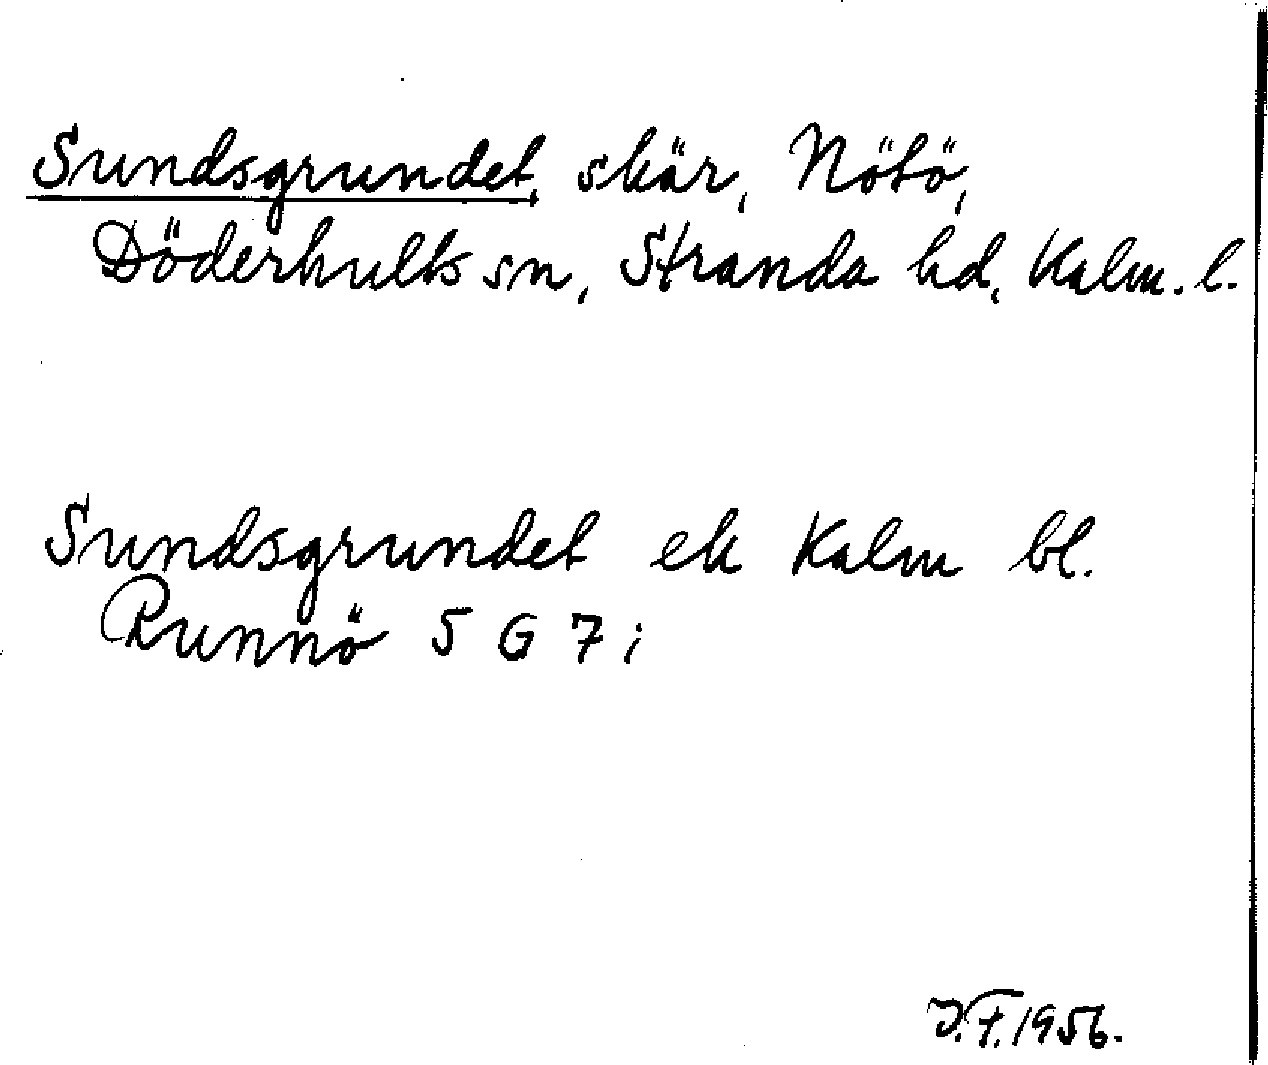 Sundsgrundet, skär, Nötö,
Döderhults sn, Stranda hd, Kalm. l.
Sundsgrundet ek Kalm bl.
Runnö 5 G 7 i
J.F. 1956.